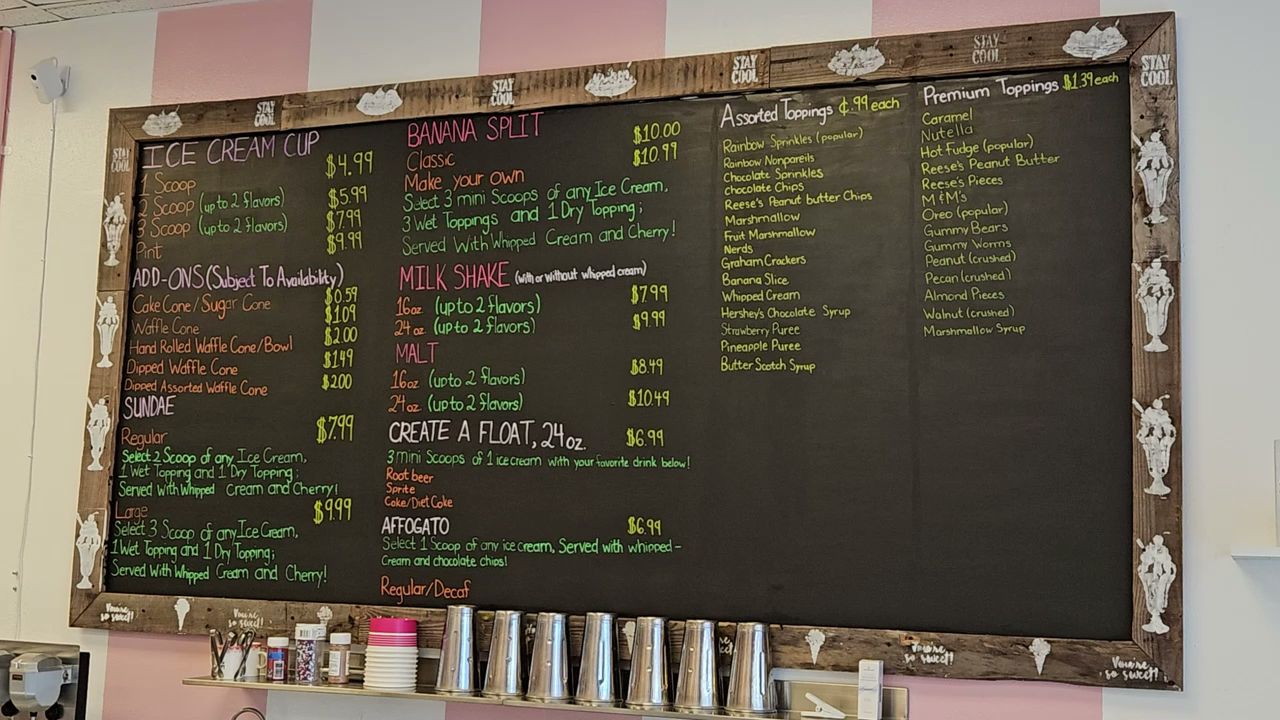 STAY COOL
STAY COOL
STAY COOL
STAY COOL
STAY COOL
STAY COOL
ICE CREAM CUP
1 Scoop $4.99
2 Scoop (up to 2 flavors) $5.99
3 Scoop (up to 2 flavors) $7.99
Pint $9.99
ADD-ONS (Subject To Availability)
Cake Cone/Sugar Cone $0.59
Waffle Cone $1.09
Hand Rolled Waffle Cone/Bowl $2.00
Dipped Waffle Cone $1.49
Dipped Assorted Waffle Cone $2.00
SUNDAE
Regular $7.99
Select 2 Scoop of any Ice Cream,
1 Wet Topping and 1 Dry Topping;
Served With Whipped Cream and Cherry!
Large $9.99
Select 3 Scoop of any Ice Cream,
1 Wet Topping and 1 Dry Topping;
Served With Whipped Cream and Cherry!
BANANA SPLIT
Classic $10.00
Make your own $10.99
Select 3 mini Scoops of any Ice Cream,
3 Wet Toppings and 1 Dry Topping;
Served With Whipped Cream and Cherry!
MILK SHAKE (with or without whipped cream)
16oz (up to 2 flavors) $7.99
24oz (up to 2 flavors) $9.99
MALT
16oz (up to 2 flavors) $8.49
24oz (up to 2 flavors) $10.49
CREATE A FLOAT, 24oz. $6.99
3 mini Scoops of 1 ice cream with your favorite drink below!
Root beer
Sprite
Coke/Diet Coke
AFFOGATO $6.99
Select 1 Scoop of any ice cream, Served with whipped-
Cream and chocolate chips!
Regular/Decaf
Assorted Toppings ¢.99 each
Rainbow Sprinkles (popular)
Rainbow Nonpareils
Chocolate Sprinkles
Chocolate Chips
Reese's Peanut butter Chips
Marshmallow
Fruit Marshmallow
Nerds
Graham Crackers
Banana Slice
Whipped Cream
Hershey's Chocolate Syrup
Strawberry Puree
Pineapple Puree
Butter Scotch Syrup
Premium Toppings $1.39 each
Caramel
Nutella
Hot Fudge (popular)
Reese's Peanut Butter
Reese's Pieces
M&M's
Oreo (popular)
Gummy Bears
Gummy Worms
Peanut (crushed)
Pecan (crushed)
Almond Pieces
Walnut (crushed)
Marshmallow Syrup
You're so sweet!
You're so sweet!
You're so sweet!
You're so sweet!